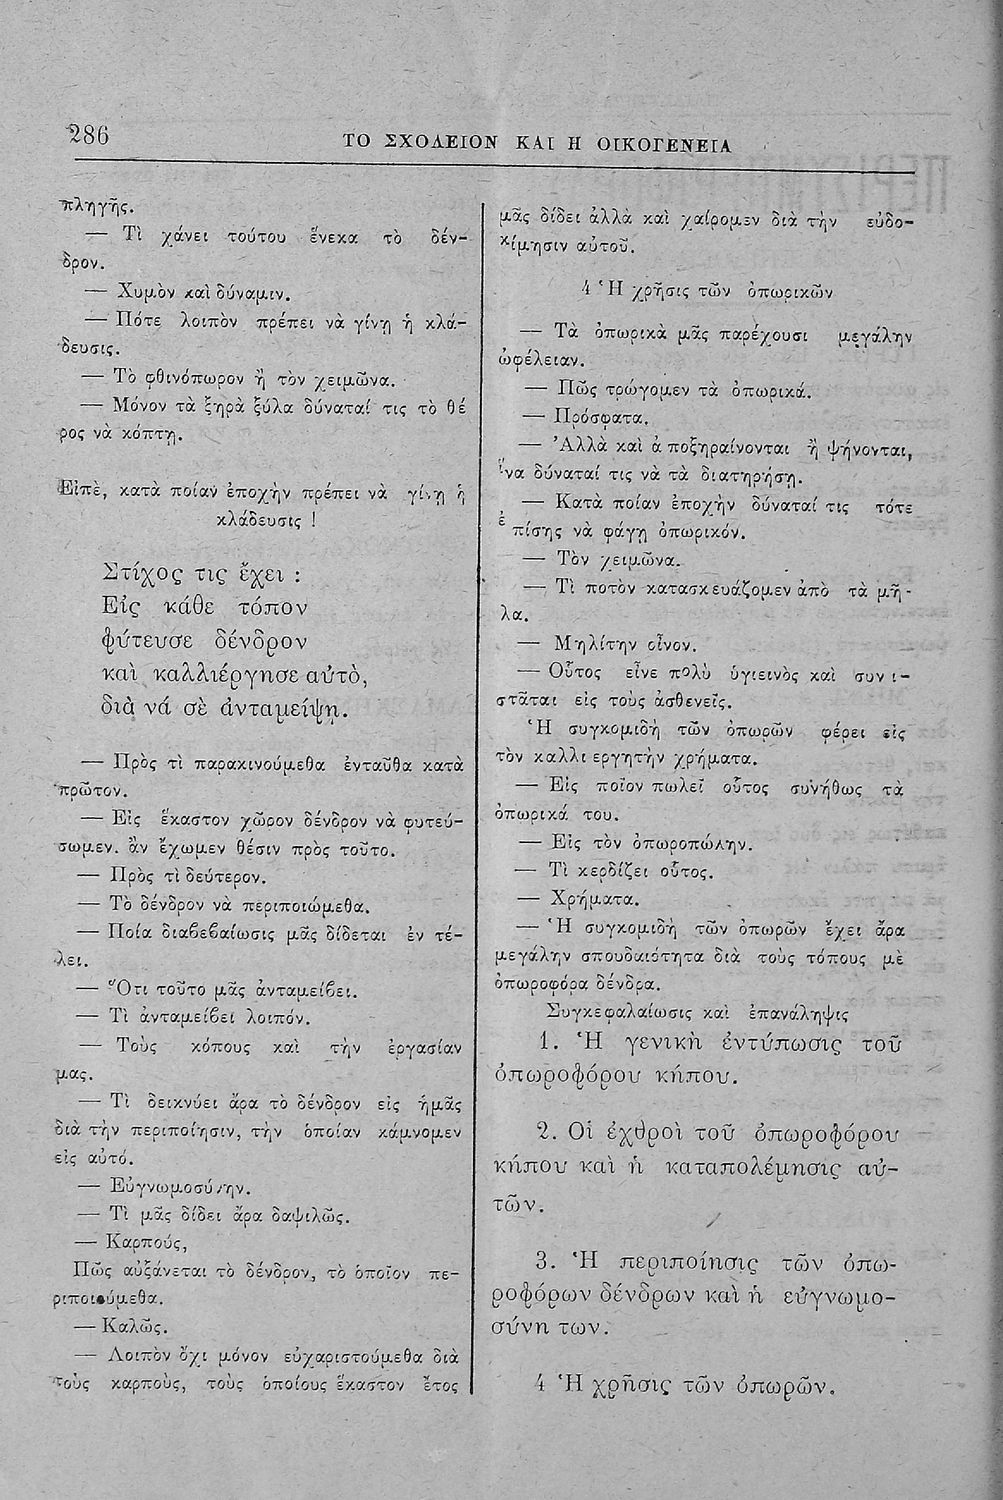 286
ΤΟ ΣΧΟΛΕΙΟΝ ΚΑΙ Η ΟΙΚΟΓΕΝΕΙΑ
πληγῆς.
— Τὶ χάνει τούτου ἕνεκα τὸ δέν-
δρον.
— Χυμὸν καὶ δύναμιν.
— Πότε λοιπὸν πρέπει νὰ γίνῃ ἡ κλά-
δευσις.
— Τὸ φθινόπωρον ἢ τὸν χειμῶνα.
— Μόνον τὰ ξηρὰ ξύλα δύναταί τις τὸ θέ
ρος νὰ κόπτῃ.
Εἰπὲ, κατὰ ποίαν ἐποχὴν πρέπει νὰ γίνῃ ἡ
κλάδευσις !
Στίχος τις ἔχει :
Εἰς κάθε τόπον
φύτευσε δένδρον
καὶ καλλιέργησε αὐτὸ,
διὰ νά σὲ ἀνταμείψῃ.
— Πρὸς τὶ παρακινούμεθα ἐνταῦθα κατὰ
πρῶτον.
— Εἰς ἕκαστον χῶρον δένδρον νὰ φυτεύ-
σωμεν. ἂν ἔχωμεν θέσιν πρὸς τοῦτο.
— Πρὸς τὶ δεύτερον.
— Τὸ δένδρον νὰ περιποιώμεθα.
— Ποία διαβεβαίωσις μᾶς δίδεται ἐν τέ-
λει.
— Ὅτι τοῦτο μᾶς ἀνταμείβει.
— Τὶ ἀνταμείβει λοιπόν.
— Τοὺς κόπους καὶ τὴν ἐργασίαν
μας.
— Τὶ δεικνύει ἄρα τὸ δένδρον εἰς ἡμᾶς
διὰ τὴν περιποίησιν, τὴν ὁποίαν κάμνομεν
εἰς αὐτό.
— Εὐγνωμοσύνην.
— Τὶ μᾶς δίδει ἄρα δαψιλῶς.
— Καρπούς,
Πῶς αὐξάνεται τὸ δένδρον, τὸ ὁποῖον πε-
ριποιούμεθα.
— Καλῶς.
— Λοιπὸν ὄχι μόνον εὐχαριστούμεθα διὰ
τοὺς καρπούς, τοὺς ὁποίους ἕκαστον ἔτος
μᾶς δίδει ἀλλὰ καὶ χαίρομεν διὰ τὴν εὐδο-
κίμησιν αὐτοῦ.
4 Ἡ χρῆσις τῶν ὀπωρικῶν
— Τὰ ὀπωρικὰ μᾶς παρέχουσι μεγάλην
ὠφέλειαν.
— Πῶς τρώγομεν τὰ ὀπωρικά.
— Πρόσφατα.
— Ἀλλὰ καὶ ἀ ποξηραίνονται ἢ ψήνονται,
ἵνα δύναταί τις νὰ τὰ διατηρήσῃ.
— Κατὰ ποίαν ἐποχὴν δύναταί τις τότε
ἐ πίσης νὰ φάγῃ ὀπωρικόν.
— Τὸν χειμῶνα.
— Τὶ ποτὸν κατασκευάζομεν ἀπὸ τὰ μῆ-
λα.
— Μηλίτην οἶνον.
— Οὗτος εἶνε πολὺ ὑγιεινὸς καὶ συν ι-
στᾶται εἰς τοὺς ἀσθενεῖς.
Ἡ συγκομιδὴ τῶν ὀπωρῶν φέρει εἰς
τὸν καλλι εργητὴν χρήματα.
— Εἰς ποῖον πωλεῖ οὗτος συνήθως τὰ
ὀπωρικά του.
— Εἰς τὸν ὀπωροπώλην.
— Τὶ κερδίζει οὗτος.
— Χρήματα.
— Ἡ συγκομιδὴ τῶν ὀπωρῶν ἔχει ἄρα
μεγάλην σπουδαιότητα διὰ τοὺς τόπους μὲ
ὀπωροφόρα δένδρα.
Συγκεφαλαίωσις καὶ ἐπανάληψις
1. Ἡ γενικὴ ἐντύπωσις τοῦ
ὀπωροφόρου κήπου.
2. Οἱ ἐχθροὶ τοῦ ὀπωροφόρου
κήπου καὶ ἡ καταπολέμησις αὐ-
τῶν.
3. Ἡ περιποίησις τῶν ὀπω-
ροφόρων δένδρων καὶ ἡ εὐγνωμο-
σύνη των.
4 Ἡ χρῆσις τῶν ὀπωρῶν.